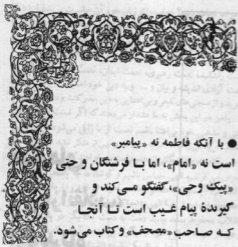 ● با آنکه فاطمه نه «پیامبر»
است نه «امام»، اما بـا فرشتگان و حتی
«پیک وحی»، گفتگو مـی‌کند و
گیرندهٔ پیام غـیب است تـا آنجـا
کـه صـاحب «مصحف» و کتاب می‌شود.